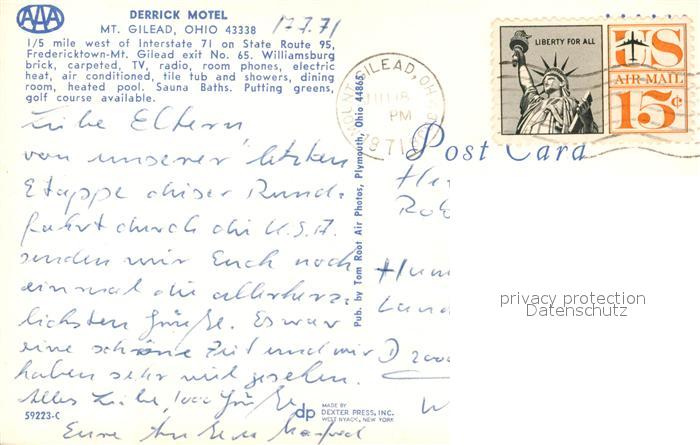 AAA
DERRICK MOTEL
MT. GILEAD, OHIO 43338
17.7.71
1/5 mile west of Interstate 71 on State Route 95,
Fredericktown-Mt. Gilead exit No. 65. Williamsburg
brick, carpeted, TV, radio, room phones, electric
heat, air conditioned, tile tub and showers, dining
room, heated pool. Sauna Baths. Putting greens,
golf course available.
LIBERTY FOR ALL
US
AIR-MAIL
15¢
MOUNT GILEAD, OH
JUL 18
PM
1971
Post Card
Liebe Eltern
von unserer letzten
Etappe dieser Rund-
fahrt durch die U.S.A.
senden wir Euch noch
einmal die allerherz-
lichsten Grüße. Es war
eine schöne Zeit und wir
haben sehr viel gesehen.
Alles Liebe, 1000 Grüße
Eure Manfred
Pub. by Tom Root Air Photos, Plymouth, Ohio 44865
D 2000
privacy protection
Datenschutz
59223-C
dp
MADE BY
DEXTER PRESS, INC.
WEST NYACK, NEW YORK